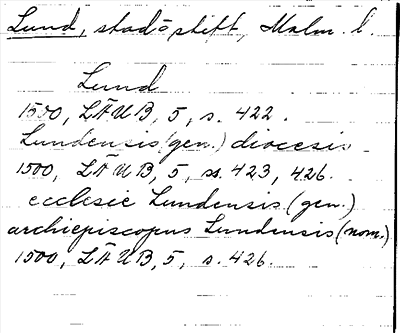 Lund, stad o. stift, Malm. l.
Lund
1500, LÄUB, 5, s. 422.
Lundensis (gen.) diocesis
1500, LÄUB, 5, ss. 423, 426.
ecclesie Lundensis (gen.)
archiepiscopus Lundensis (nom.)
1500, LÄUB, 5, s. 426.